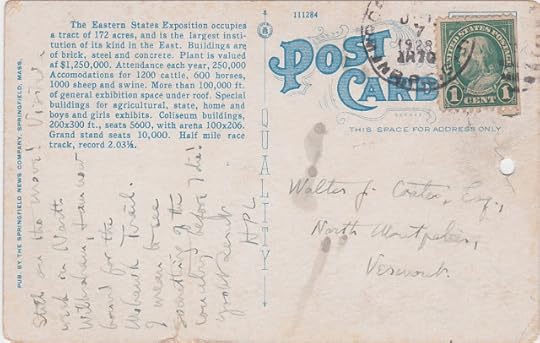 The Eastern States Exposition occupies
a tract of 172 acres, and is the largest insti-
tution of its kind in the East. Buildings are
of brick, steel and concrete. Plant is valued
at $1,250,000. Attendance each year, 250,000
Accomodations for 1200 cattle, 600 horses,
1000 sheep and swine. More than 100,000 ft.
of general exhibition space under roof. Special
buildings for agricultural, state, home and
boys and girls exhibits. Coliseum buildings,
200x300 ft., seats 5600, with arena 100x206.
Grand stand seats 10,000. Half mile race
track, record 2.03¼.
PUB. BY THE SPRINGFIELD NEWS COMPANY, SPRINGFIELD, MASS.
Still on the move!
in North
Wilbraham, & am now
bound for the
Mohawk Trail.
I mean to see
something of the
country before I die!
HPL
QUALITY
111284
POST
CARD
THIS SPACE FOR ADDRESS ONLY
7
1928
UNITED STATES POSTAGE
1 CENT 1
Walter J. Coates, Esq.,
North Montpelier,
Vermont.